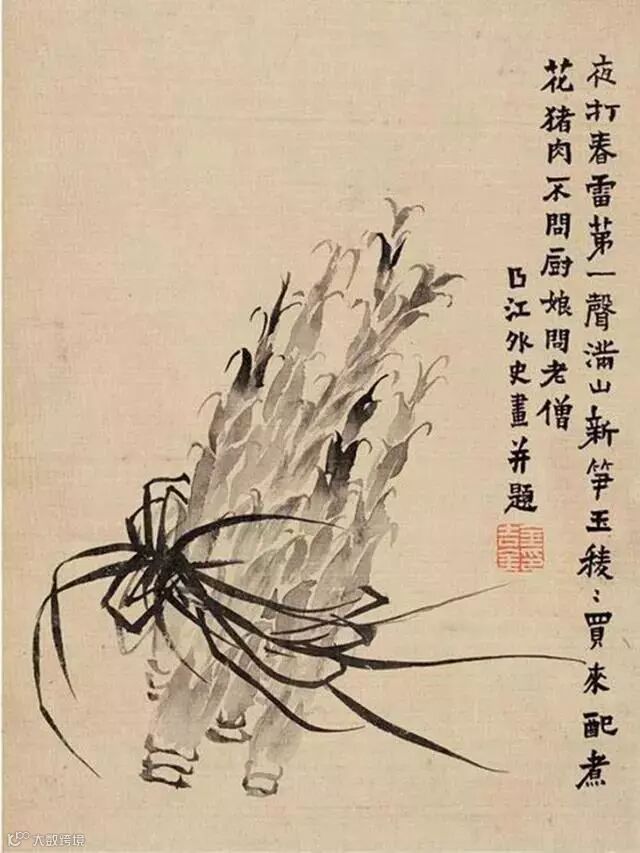 夜打春雷苐一聲滿山新笋玉稜〻買來配煮
花猪肉不問厨娘問老僧
曲江外史畫并題
大数跨境